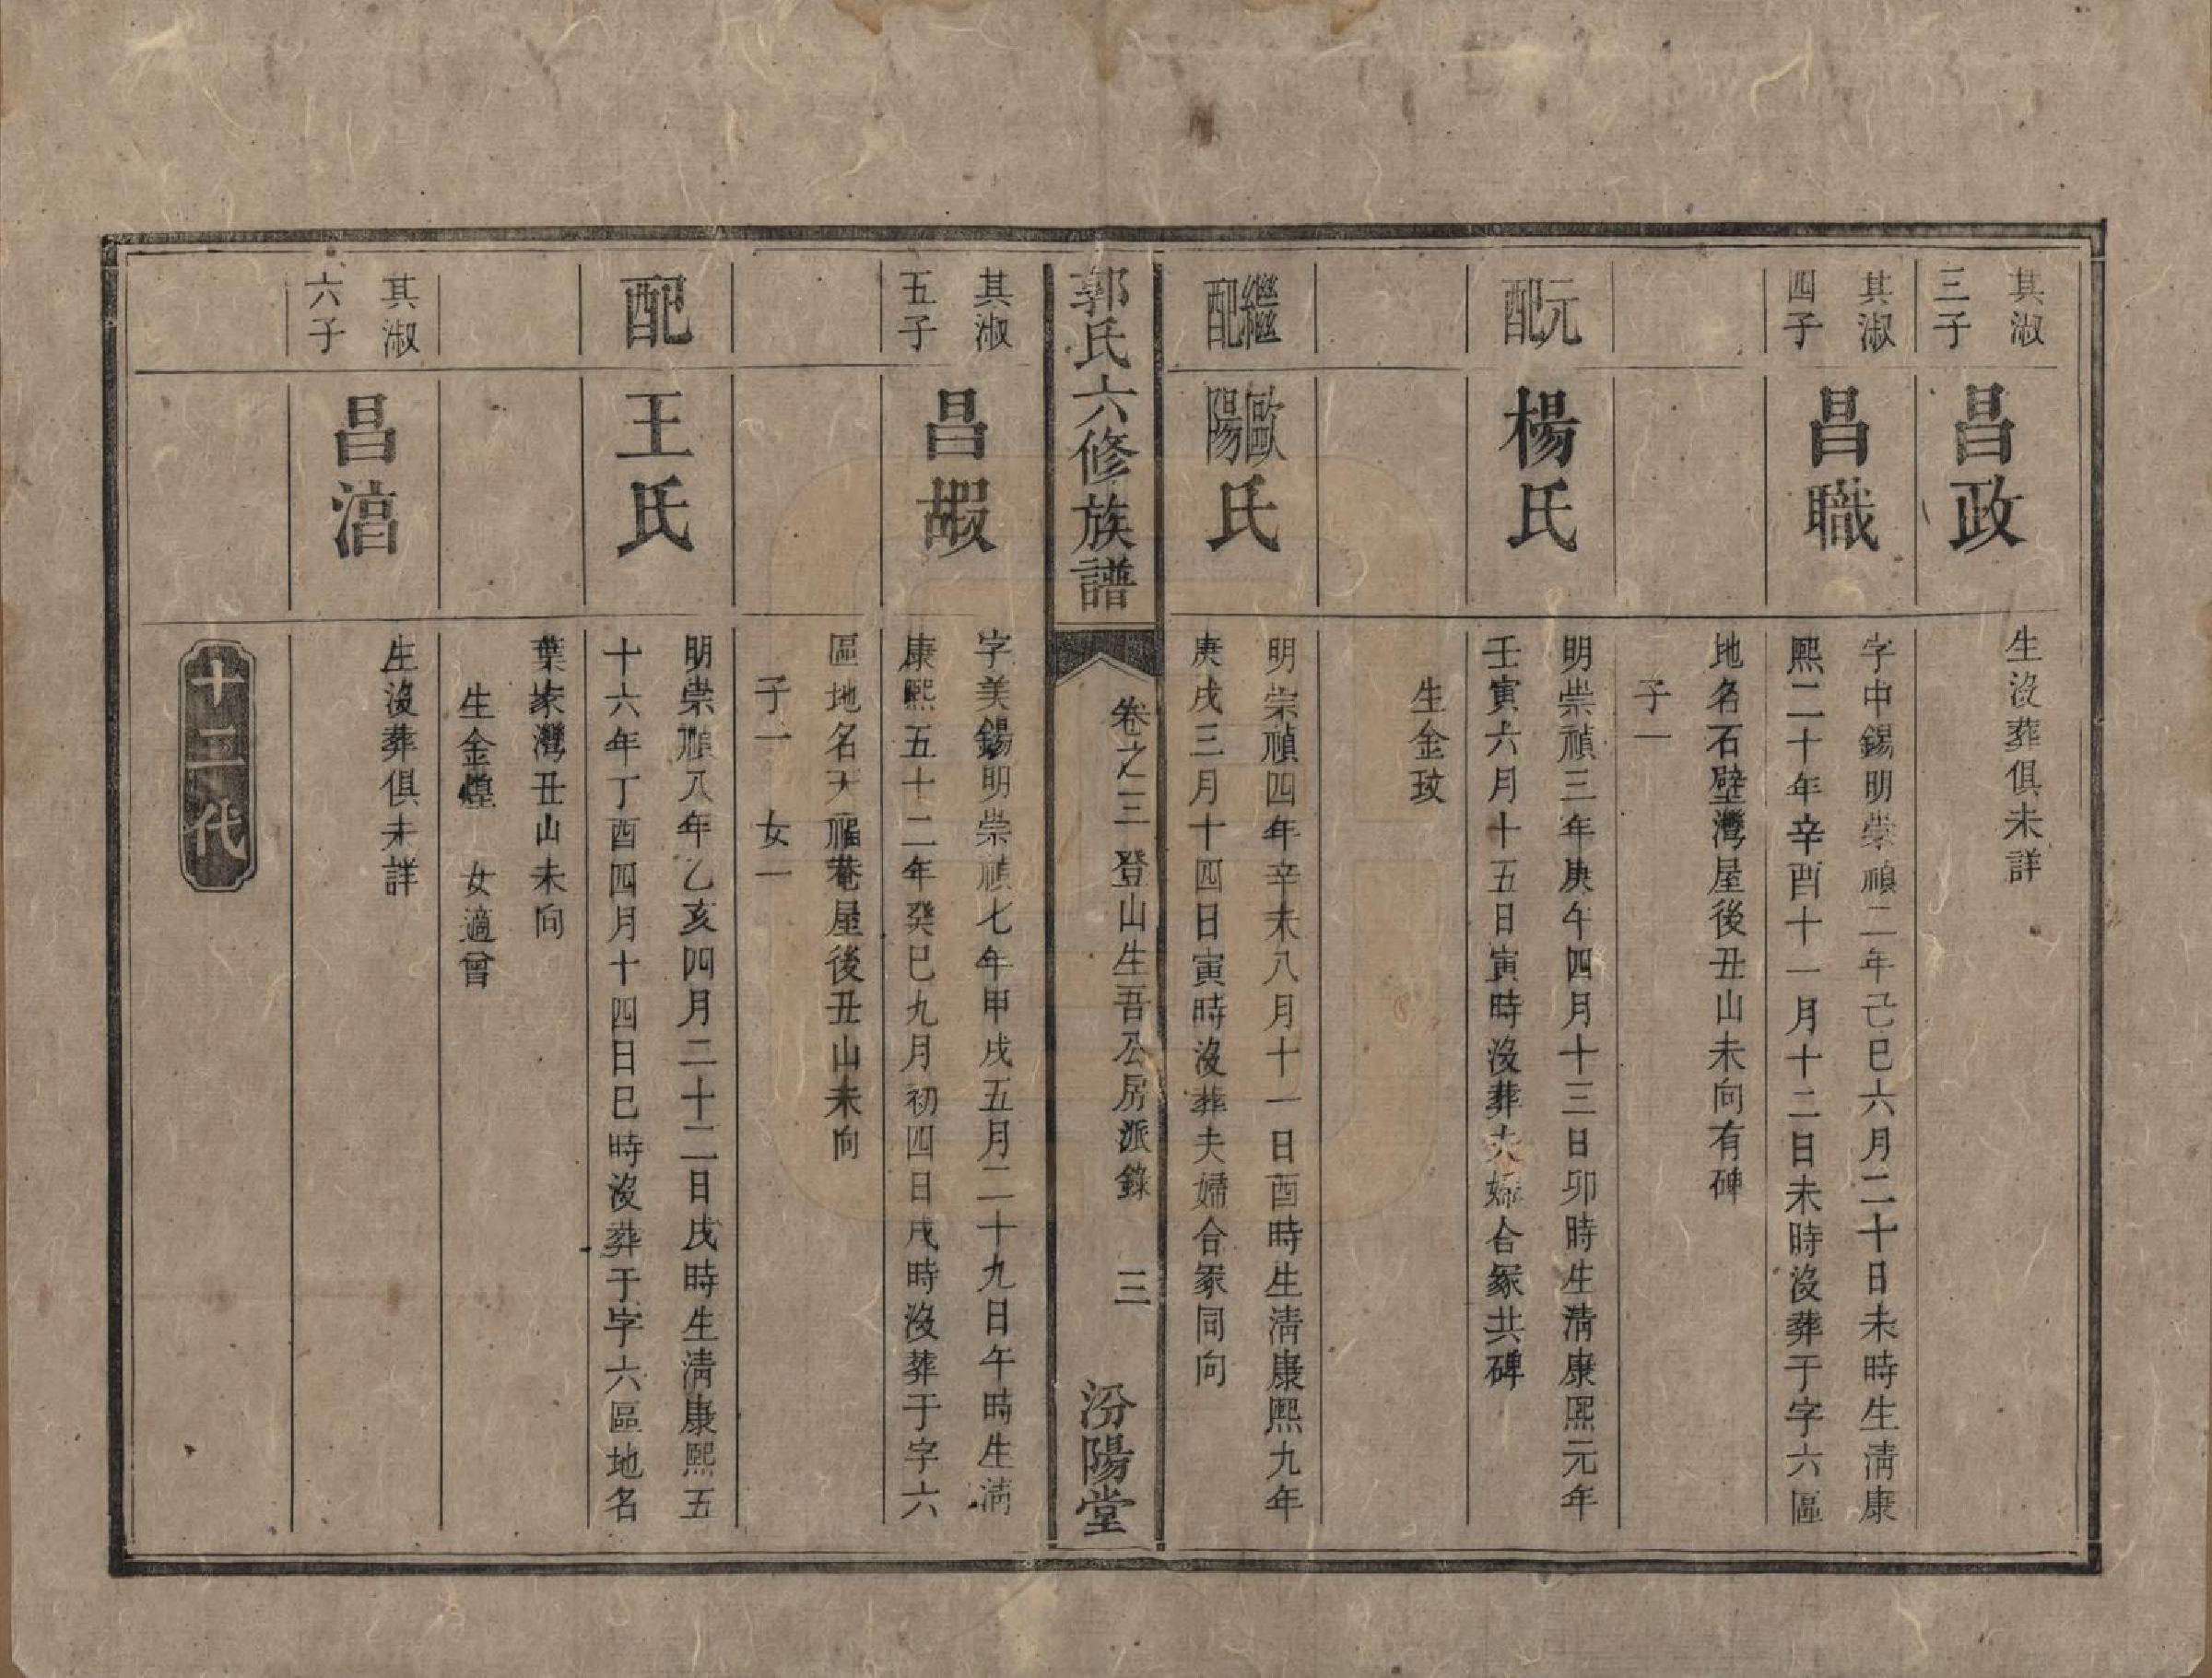 其淑
三子
昌政
生沒葬俱未詳
其淑
四子
昌職
字中錫明崇禎二年己巳六月二十日未時生淸康
熙二十年辛酉十一月十二日未時沒葬于字六區
地名石壁灣屋後丑山未向有碑
子一
元配
楊氏
明崇禎三年庚午四月十三日卯時生淸康熙元年
壬寅六月十五日寅時沒葬夫婦合冢共碑
生金玟
繼配
歐陽氏
明崇禎四年辛未八月十一日酉時生淸康熙九年
庚戌三月十四日寅時沒葬夫婦合冢同向
郭氏六修族譜
卷之三 登山生吾公房派錄 三
汾陽堂
其淑
五子
昌嘏
字美錫明崇禎七年甲戌五月二十九日午時生淸
康熙五十二年癸巳九月初四日戌時沒葬于字六
區地名天福菴屋後丑山未向
子一 女一
配
王氏
明崇禎八年乙亥四月二十二日戌時生淸康熙五
十六年丁酉四月十四日巳時沒葬于字六區地名
葉家灣丑山未向
生金煌 女適曾
其淑
六子
昌湻
生沒葬俱未詳
十二代